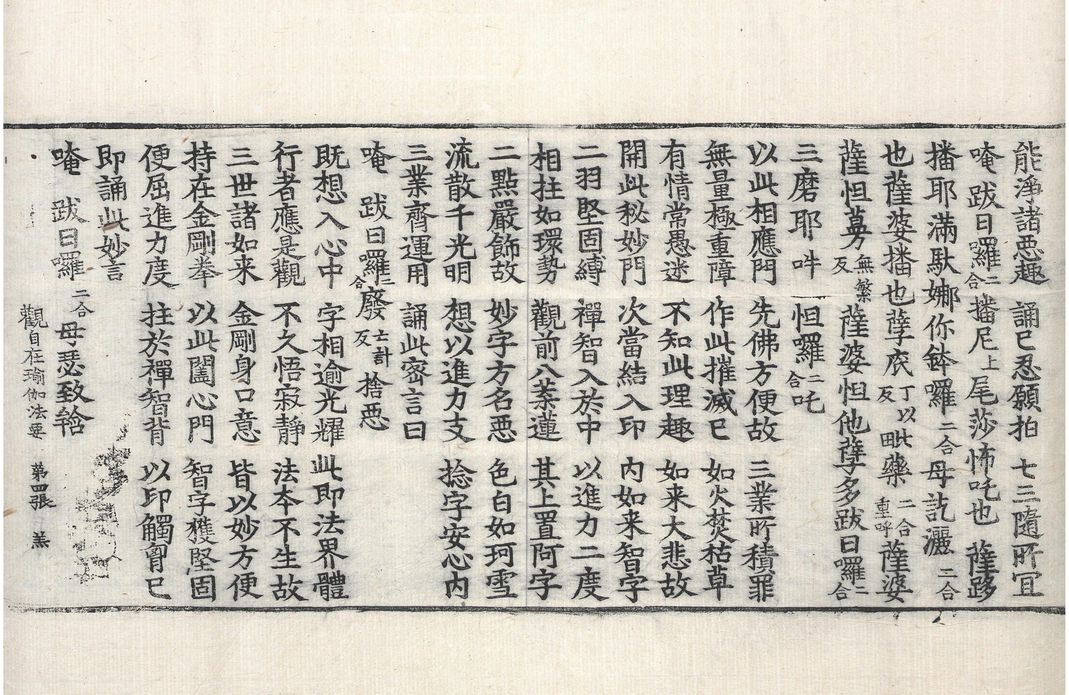 能淨諸惡趣 誦已忍願拍 七三隨所宜
唵 跋日囉二合播尼上尾莎怖吒也 薩跢
播耶滿馱娜你鉢囉二合母訖灑二合
也薩婆播也孽 丁以反此藥二合重呼薩婆
薩怛蒡無繁反薩婆怛他孽多跋日囉二合
三麼耶吽 怛囉二合吒
以此相應門 先佛方便故 三業所積罪
無量極重障 作此摧滅已 如火焚枯草
有情常愚迷 不知此理趣 如来大悲故
開此秘妙門 次當結入印 内如来智字
二羽堅固縛 禪智入於中 以進力二度
相拄如環勢 觀前八葉蓮 其上置阿字
二點嚴飾故 妙字方名惡 色白如珂雪
流散千光明 想以進力支 捻字安心内
三業齊運用 誦此密言曰
唵 跋日囉二合廢亡計反捨惡
既想入心中 字相逾光耀 此即法界體
行者應是觀 不久悟寂静 法本不生故
三世諸如来 金剛身口意 皆以妙方便
持在金剛拳 以此闔心門 智字獲堅固
便屈進力度 拄於禪智背 以印觸胷已
即誦此妙言
唵 跋日囉二合母瑟致𤚥
觀自在瑜伽法要 第四張 羔